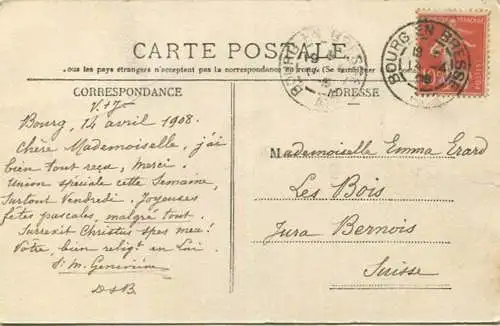 CARTE POSTALE
ous les pays étrangers n'acceptent pas la correspondance au recto. (Se renseigner
CORRESPONDANCE
ADRESSE
BOURG EN BRESSE
BOURG EN BRESSE
V.+J.
Bourg, 14 avril 1908.
Chère Mademoiselle, j'ai
bien tout reçu, merci.
Union spéciale cette Semaine,
Surtout Vendredi. Joyeuses
fêtes pascales, malgré tout.
Surrexit Christus spes mea!
Votre bien relig.t en Lui.
Sr M. Geneviève
D+B.
Mademoiselle Emma Erard
Les Bois
Jura Bernois
Suisse